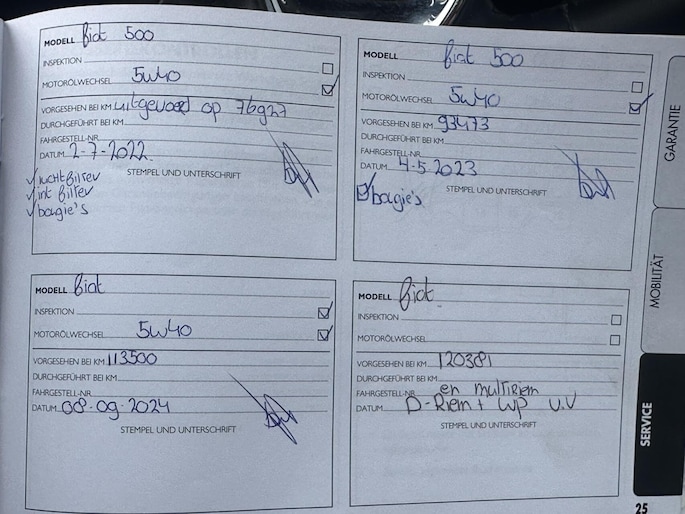 MODELL fiat 500
INSPEKTION
MOTORÖLWECHSEL 5W40
VORGESEHEN BEI KM uitgevoerd op 76927
DURCHGEFÜHRT BEI KM
FAHRGESTELL-NR.
DATUM 2-7-2022
STEMPEL UND UNTERSCHRIFT
luchtfilter
int filter
bougie's
MODELL fiat 500
INSPEKTION
MOTORÖLWECHSEL 5W40
VORGESEHEN BEI KM 93473
DURCHGEFÜHRT BEI KM
FAHRGESTELL-NR.
DATUM 4-5-2023
STEMPEL UND UNTERSCHRIFT
bougie's
MODELL fiat
INSPEKTION
MOTORÖLWECHSEL 5W40
VORGESEHEN BEI KM 113500
DURCHGEFÜHRT BEI KM
FAHRGESTELL-NR.
DATUM 08-09-2024
STEMPEL UND UNTERSCHRIFT
MODELL fiat
INSPEKTION
MOTORÖLWECHSEL
VORGESEHEN BEI KM 120381
DURCHGEFÜHRT BEI KM
FAHRGESTELL-NR. en multiriem
DATUM D-Riem + WP V.V
STEMPEL UND UNTERSCHRIFT
GARANTIE
MOBILITÄT
SERVICE
25